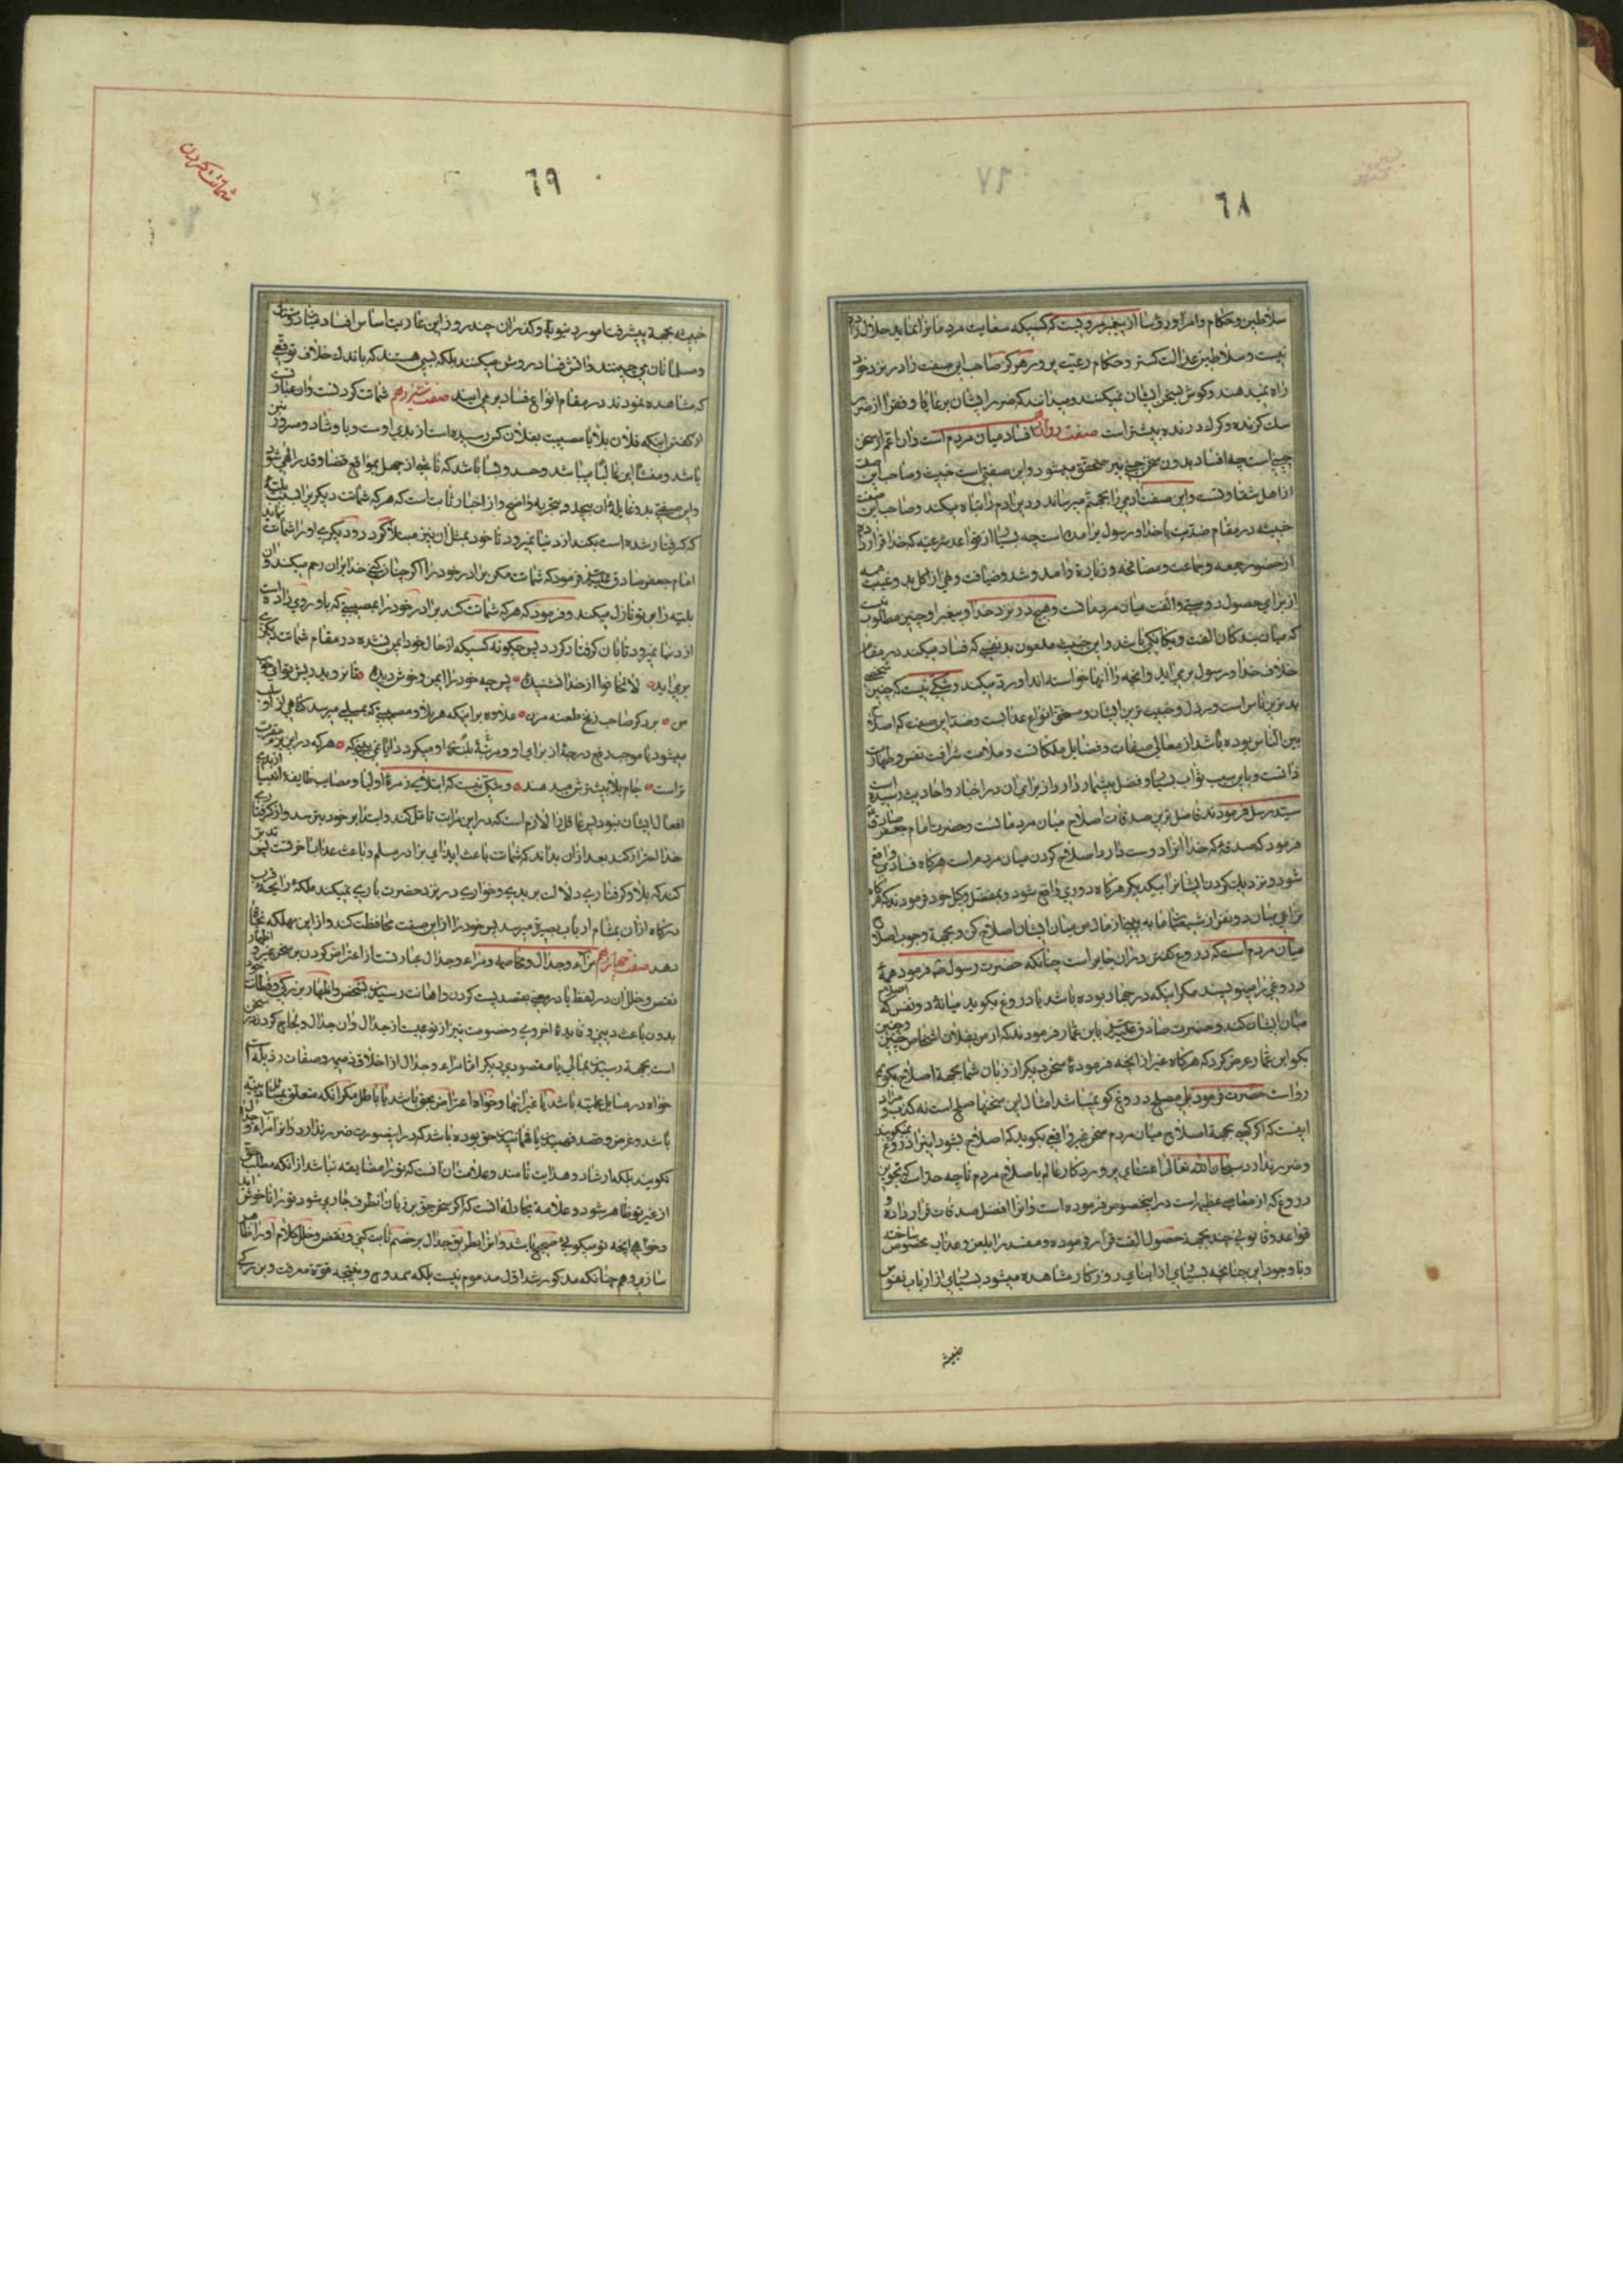 ٦٨
سلاطین و حکام و امرا و رؤسا از پیغمبر مرویست که کسیکه سعایت مردمانرا نماید حلال زاده
نیست و سلاطین عدالت کستر و حکام رعیت پرور هرکز صاحب این صفت را در نزد خود
راه نمیدهند و کوش بسخن ایشان نمیکنند و میدانند که ضرر ایشان بر عایا و فقرا از ضرر
سك کزنده و کرك درنده بیشتر است صفت دوازدهم افساد میان مردم است و ان اعم از سخن
چینی است چه افساد بدون سخن چینی نیز متحقق میشود و این صفتی است خبیث و صاحب این صفت
از اهل شقاوتست و این صفت ادمی را بجهنم میرساند و دین ادم را تباه میکند و صاحب این صفت
خبیثه در مقام ضدیت با خدا و رسول برامده است چه بسیاری از قواعد شرعیه که خدا قرار داده
از حضور جمعه و جماعت و مصافحه و زیارة و امد و شد و ضیافت و نهی از کل بد و غیبت همه
از برای حصول دوستی و الفت میان مردمانست و هیچ در نزد خدا و پیغمبر او چنین مطلوب نیست
که میان بندکان الفت و یکانکی باشد و این خبیث ملعون بد نفسی که فساد میکند در مقام
خلاف خدا و رسول بر می اید و انچه را انها خواسته اند او رد میکند و شکی نیست که چنین شخصی
بدترین ناس است و رذل و خبیث ترین ایشان و مستحق انواع عذابست و ضد این صفت که اصلاح
بین الناس بوده باشد از معالی صفات و فضایل ملکاتست و علامت شرافت نفس و طهارت
ذاتست و باین سبب ثواب بسیار و فضل بیشمار دارد و از برای ان در اخبار و احادیث رسیده است
سید رسل فرمودند فاضل ترین صدقات اصلاح میان مردمانست و حضرت امام جعفر صادق
فرمود که صدقه که خدا انرا دوست دارد اصلاح کردن میان مردم است هرکاه فسادی واقع
شود و نزدیك کردن ایشانرا بیکدیکر هرکاه دوری واقع شود و بمفضل وکیل خود فرمودند که هرکاه
نزاعی میان دو نفر از شیعیان ما به بینی از مال من میان ایشان اصلاح کن و بجهة وجوب اصلاح
میان مردم است که دروغ کفتن در ان جایز است چنانکه حضرت رسول ص فرمود همه
دروغی را مینویسند مکر اینکه در جهاد بوده باشد یا دروغ بکوید میانه دو نفس که اصلاح
میان ایشان کند و حضرت صادق علیه السلم بابن عمار فرمودند که از من بفلان اشخاص چنین و چنین
بکو ابن عمار عرض کرد که هرکاه غیر از انچه فرموده سخن دیکر از زبان شما بجهة اصلاح بکویم
رواست حضرت فرمود بلی مصلح دروغ کو نمیباشد امثال این سخنها صلح است نه کذب و مراد
اینست که اکر کسی بجهة اصلاح میان مردم سخن غیر واقعی بکوید که اصلاح بشود اینرا دروغ نمیکویند
و ضرر ندارد سبحان الله تعالی اعتنای پروردکار عالم باصلاح مردم تا چه حد است که تجویز
دروغ که از معاصی عظیمه است در اینخصوص فرموده است و انرا افضل صدقات قرار داده و
قواعد و قانونی چند بجهة حصول الفت قرار فرموده و مفسد را بلعن و عذاب مخصوص ساخته
و با وجود این چنانچه بسیاری از ابنای روزکار مشاهده میشود بسیاری از ارباب نفوس
خبیثه
شماتت کردن
٦٩
خبیثه بجهة پیشرفت امور دنیویه و کذران چند روز این عاریت اساس افساد میانه دوستان
و مسلمانان می چینند و اتش فساد روشن میکنند بلکه بسی هستند که باندك خلاف توقعی
که مشاهده نمودند در مقام انواع فساد بر می ایند صفت سیزدهم شماتت کردنست و ان عبارت
از کفتن اینکه فلان بلا یا مصیبت بفلان کس رسیده است از بدی اوست و با و شاد و مسرور نیز
باشد و منشا این غالبا میباشد و حسد و بسا باشد که ناشی از جهل بمواقع قضا و قدر الهی شود
و این صفتی بد و غایله ان بیحد و بتجربه واضح و از اخبار ثابت است که هر که شماتت دیکری را بسبب بلیه
که کرفتار شده است بکند از دنیا نمیرود تا خود بمثل ان نیز مبتلا کردد و دیکری او را شماتت نماید
امام جعفر صادق علیه السلم فرمود که شماتت مکن برادر خود را اکر چنان کنی خدا بر ان رحم میکند و ان
بلیه را بر تو نازل میکند و فرمود که هر که شماتت کند برادر خود را بمصیبتی که باو روی داده است
از دنیا نمیرود تا بان کرفتار کردد پس چکونه کسیکه از حال خود ایمن نشده در مقام شماتت دیکری
برمی اید لا تخافوا از خدا نشنیده پس چه خود را ایمن و خوش دیده
علاوه بر اینکه هر بلا و مصیبتی که بمسلمی میرسد کاهی از او سلب
میشود یا موجب رفع درجه از برای او و مرتبه بلندی او میکردد ایا نمی بینی که هر که در این بزم مقرب تر
است جام بلا بیشترش میدهند و شکی نیست که ابتلای زمره اولیا و مصایب طایفه انبیا از بدی
افعال ایشان نبود پس عاقل را لازم است که در این مراتب تامل کند و ابتدا بر خود بترسد و از کرفتاری
خدا احتراز کند بعد از ان بداند که شماتت باعث ایذای برادر مسلم و باعث عذاب اخرتست پس تدبر
کند که بلا و کرفتاری دلالت بر بدی و خواری در نزد حضرت باری نمیکند بلکه رایحه قرب
درکاه از ان بمشام ارباب بصیرة میرسد پس خود را از این صفت محافظت کند و از این مهلکه نجات
دهد صفت چهاردهم مراء و جدال و مخاصمه و مراء و جدال عبارتست از اعتراض کردن بر سخن غیر و اظهار
نقص و خلل ان در لفظ یا در معنی بقصد پست کردن و اهانت رسیدن بشخص و اظهار بزرکی و فطانت خود
بدون باعث دینی و فایده اخروی و خصومت نیز از نوعیست از جدال و ان جدال و لجاج کردن در سخن
است بجهة رسیدن بمالی یا مقصودی دیکر اما مراء و جدال از اخلاق ذمیمه و صفات رذیله است
خواه در مسایل علمیه باشد یا غیر انها و خواه اعتراض بحق باشد یا باطل مکر انکه متعلق بمسایل دینیه
باشد و غرض و قصد فهمیدن یا فهمانیدن حق بوده باشد که در اینصورت ضرر ندارد و انرا مراء و جدال
نکویند بلکه ارشاد و هدایت نامند و علامت ان انست که تو را مضایقه نباشد از انکه مطلب حق
از غیر تو ظاهر شود و علامه مجادله انست که اکر سخن حق بر زبان انطرف جاری شود تو را ناخوش اید
و خواهی انچه تو میکوئی صحیح باشد و انرا بطریق جدال بر خصم ثابت کنی و نقص و خلل کلام او را ظاهر
سازی و هم چنانکه مذکور شد اول مذموم نیست بلکه ممدوح و نتیجه قوة معرفت و بزرکی